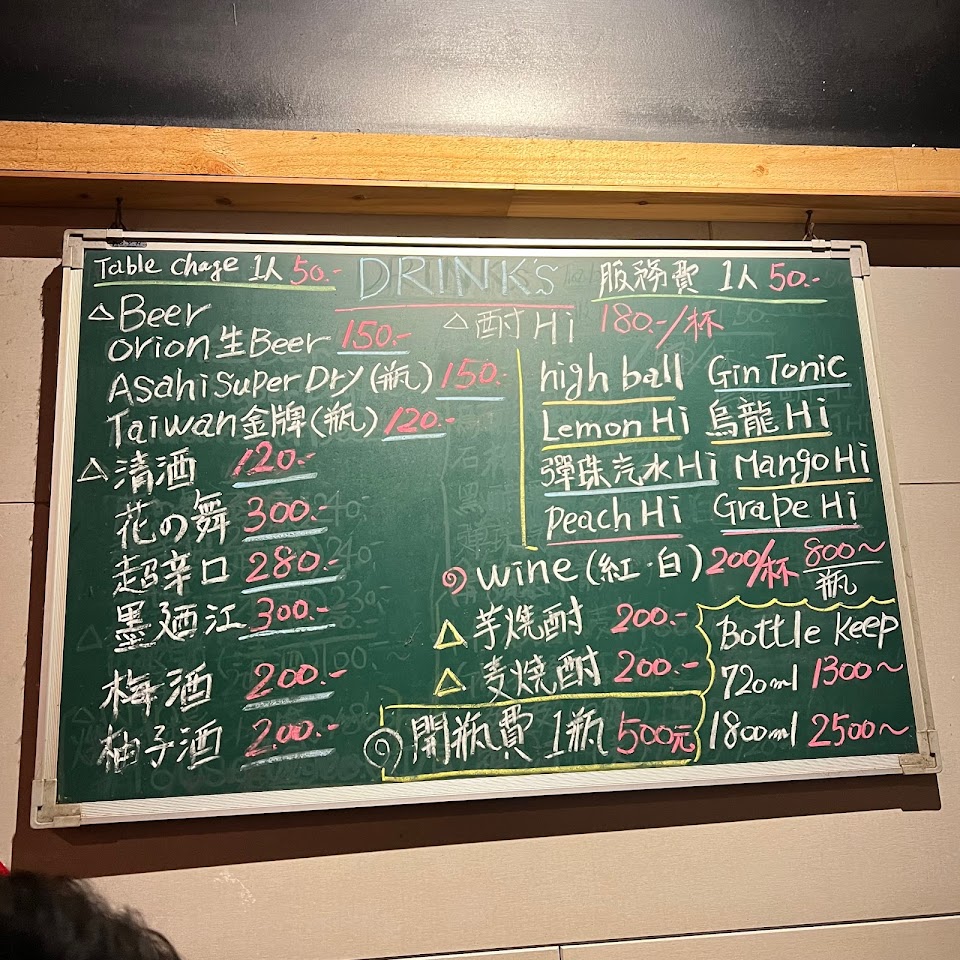 Table chage 1人 50.-
DRINK's
服務費 1人 50.-
△Beer
orion生Beer 150.-
Asahi Super Dry (瓶) 150.-
Taiwan金牌(瓶) 120.-
△清酒 120.-
花の舞 300.-
超辛口 280.-
墨廼江 300.-
梅酒 200.-
柚子酒 200.-
△酎Hi 180.-/杯
high ball Gin Tonic
Lemon Hi 烏龍Hi
彈珠汽水Hi Mango Hi
Peach Hi Grape Hi
wine (紅·白) 200/杯 800~/瓶
△芋燒酎 200.-
△麦燒酎 200.-
開瓶費 1瓶 500元
Bottle keep
720ml 1300~
1800ml 2500~